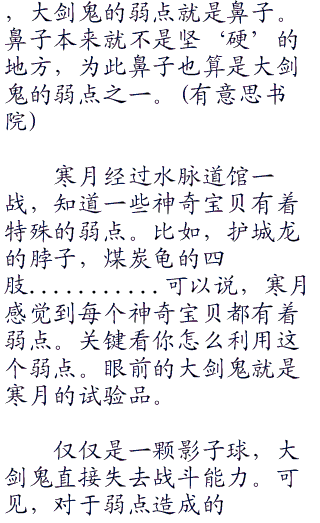 ，大剑鬼的弱点就是鼻子。
鼻子本来就不是坚‘硬’的
地方，为此鼻子也算是大剑
鬼的弱点之一。(有意思书
院)
寒月经过水脉道馆一
战，知道一些神奇宝贝有着
特殊的弱点。比如，护城龙
的脖子，煤炭龟的四
肢...........可以说，寒月
感觉到每个神奇宝贝都有着
弱点。关键看你怎么利用这
个弱点。眼前的大剑鬼就是
寒月的试验品。
仅仅是一颗影子球，大
剑鬼直接失去战斗能力。可
见，对于弱点造成的